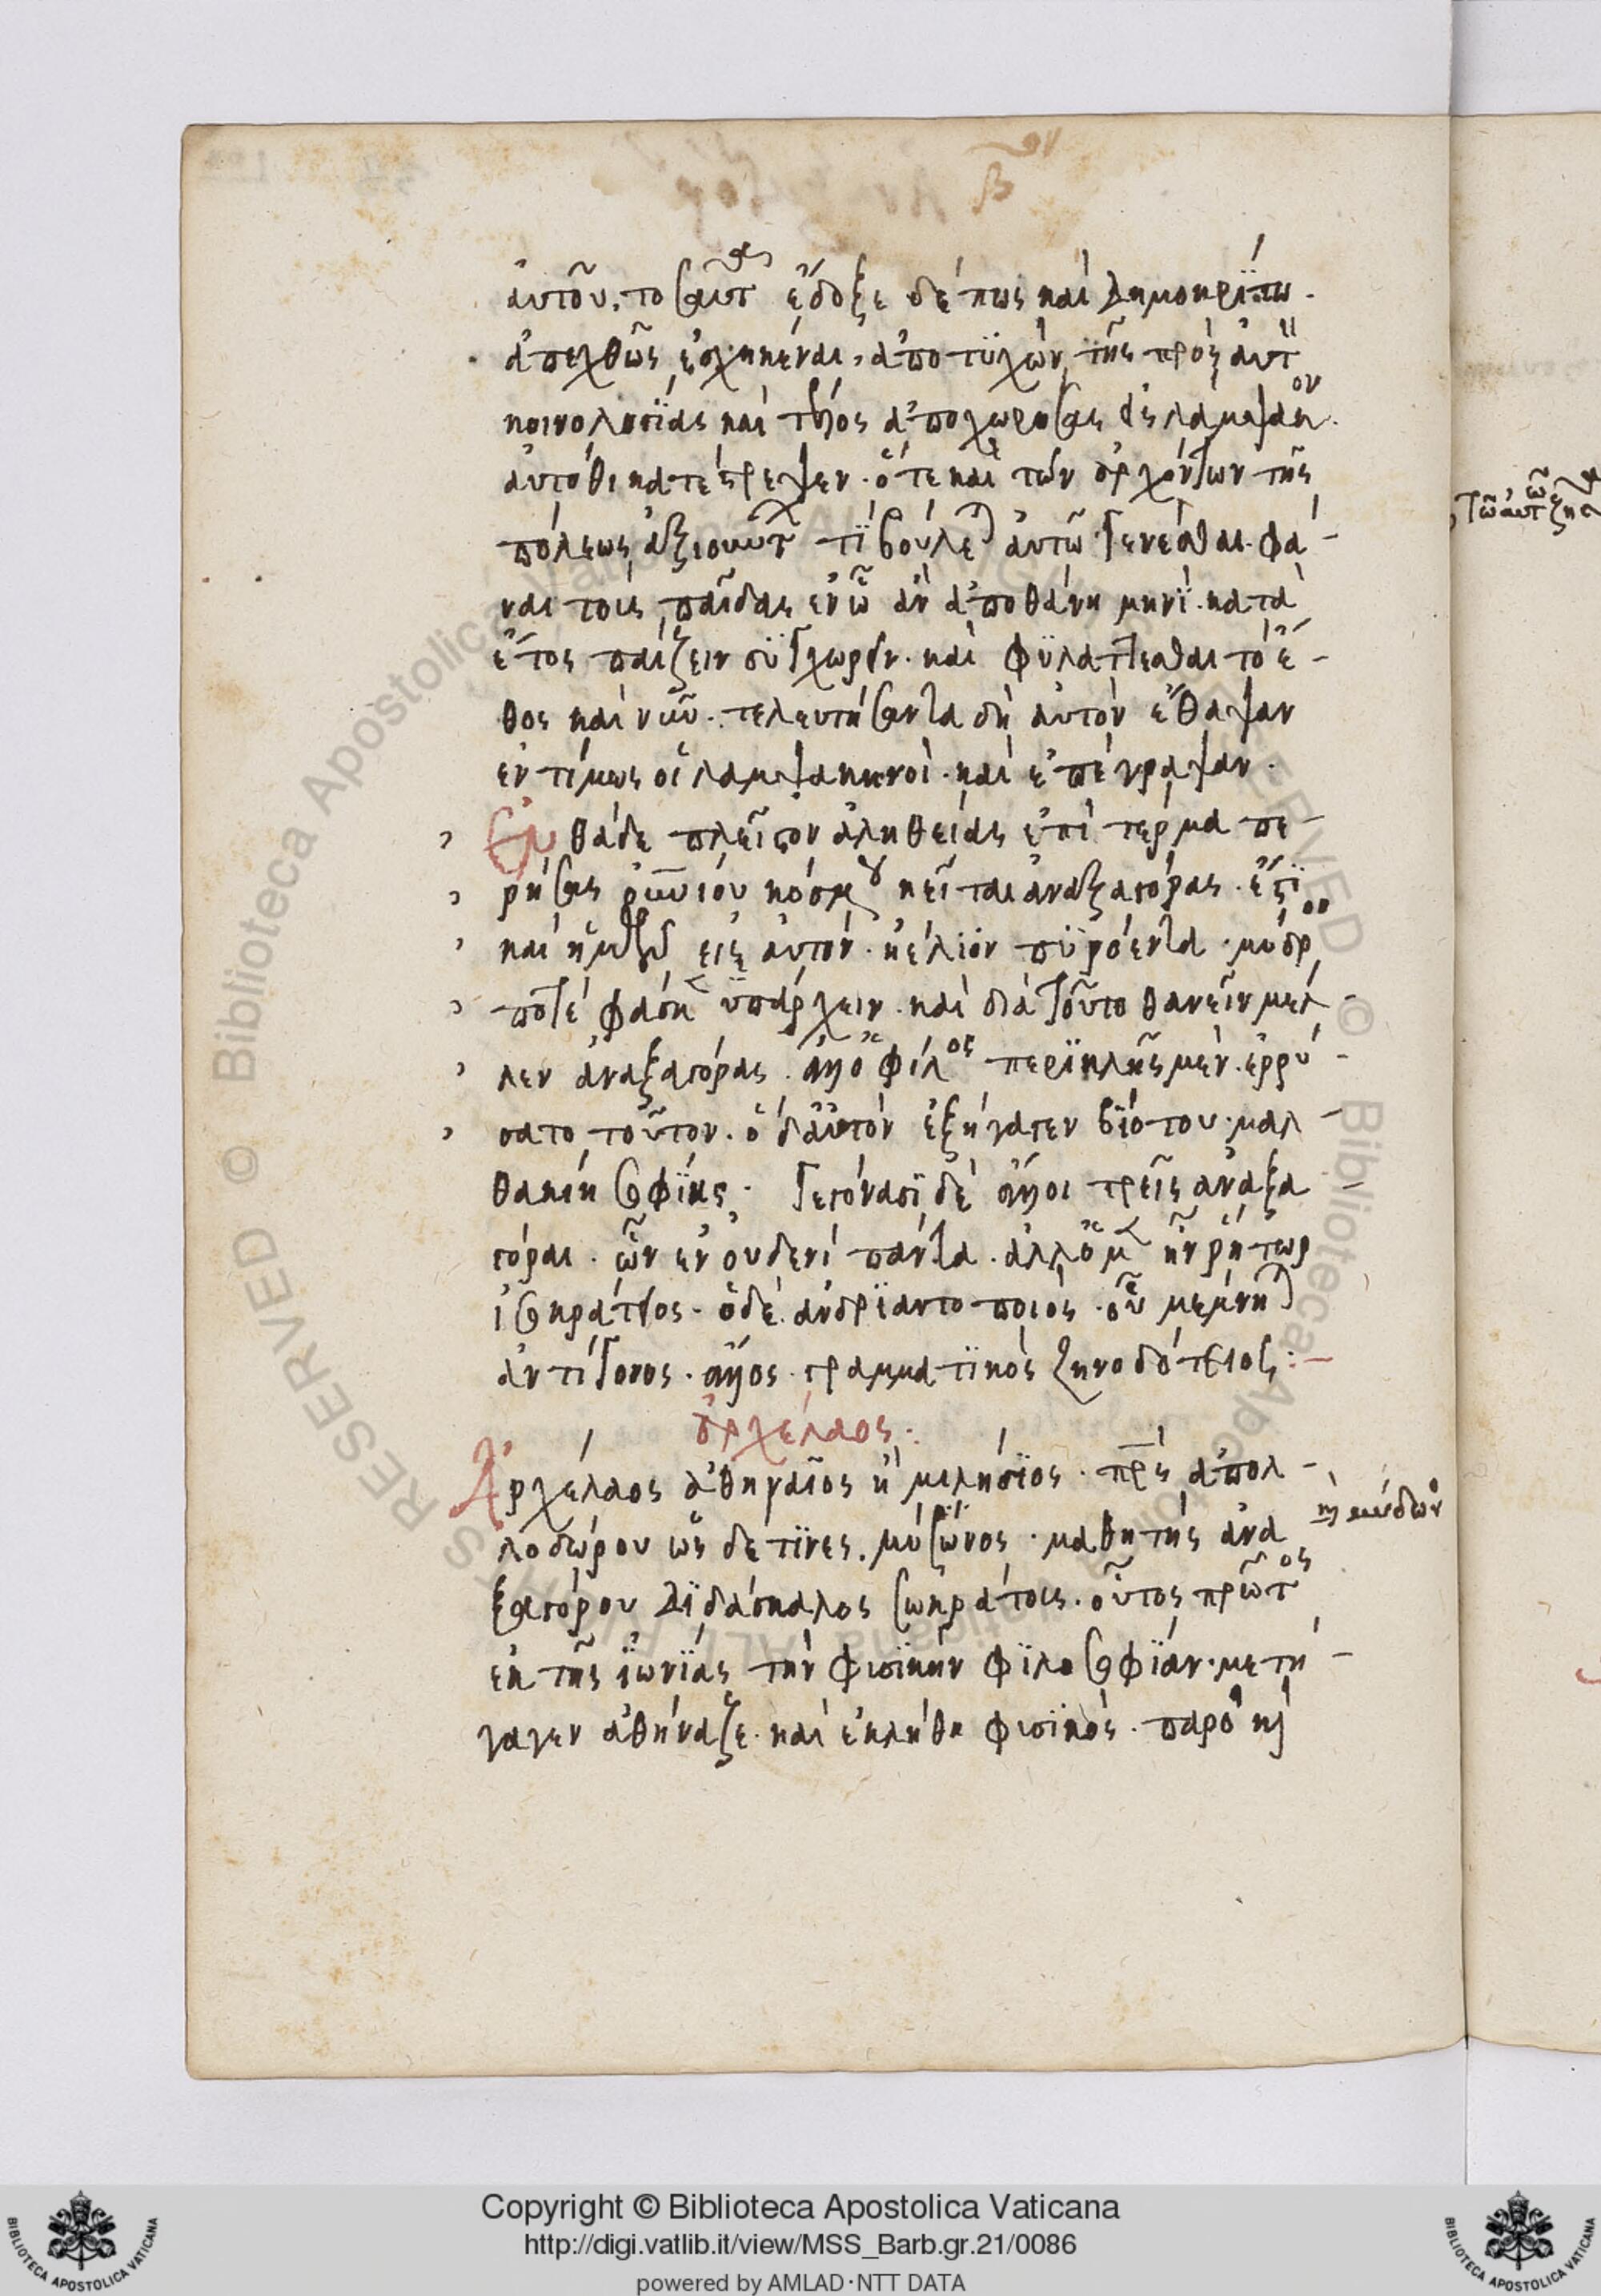 αὐτοῦ. τοσαῦτα ἔδοξε δέ πως καὶ Δημοκρίτω.
ἀπεχθῶς ἐσχηκέναι, ἀποτυχὼν τῆς πρὸς αὐτὸν
κοινολογίας καὶ τέλος ἀποχωρήσας εἰς λάμψακον.
αὐτόθι κατέστρεψεν. ὅτε καὶ τῶν ἀρχόντων τῆς
πόλεως ἀξιούντων τί βούλεται αὐτῶ γενέσθαι. φά-
ναι τοὺς παῖδας ἐν ὧ ἂν ἀποθάνη μηνὶ. κατὰ
ἔτος παίζειν συγχωρεῖν. καὶ φυλάττεσθαι τὸ ἔ-
θος καὶ νῦν. τελευτήσαντα δὴ αὐτὸν ἔθαψαν
ἐντίμως οἱ λαμψακηνοὶ. καὶ ἐπέγραψαν.
Ἐνθάδε πλεῖστον ἀληθείας ἐπὶ τέρμα πε-
ρήσας οὐρανίου κόσμου κεῖται ἀναξαγόρας. ἔστι
καὶ ἡμῶν εἰς αὐτόν. ἠέλιον πυρόεντα. μύδρον
ποτέ φάσκεν ὑπάρχειν. καὶ διὰ τοῦτο θανεῖν μέλ-
λεν ἀναξαγόρας. ἀλλ' ὁ φίλος περικλῆς μὲν. ἐρρύ-
σατο τοῦτον. ὁ δ' αὑτὸν ἐξήγαγεν βιότου. μαλ-
θακίη σοφίης. Γεγόνασι δὲ ἄλλοι τρεῖς ἀναξα-
γόραι. ὧν ἐν οὐδενὶ πάντα. ἀλλ' ὁ μὲν ἦν ῥήτωρ
ἰσοκράτειος. ὁ δὲ ἀνδριαντοποιὸς. οὗ μέμνηται
ἀντίγονος. ἄλλος γραμματικὸς ζηνοδότειος:-
ἀρχέλαος.
Ἀρχέλαος ἀθηναῖος ἢ μιλήσιος. πατρὸς ἀπολ-
λοδώρου ὡς δέ τινες. μύσωνος. μαθητὴς ἀνα
ξαγόρου Διδάσκαλος σωκράτους. οὗτος πρῶτος
ἐκ τῆς ἰωνίας τὴν φυσικὴν φιλοσοφίαν. μετή-
γαγεν ἀθήναζε. καὶ ἐκλήθη φυσικός. παρὸ καὶ
Copyright © Biblioteca Apostolica Vaticana
http://digi.vatlib.it/view/MSS_Barb.gr.21/0086
powered by AMLAD·NTT DATA